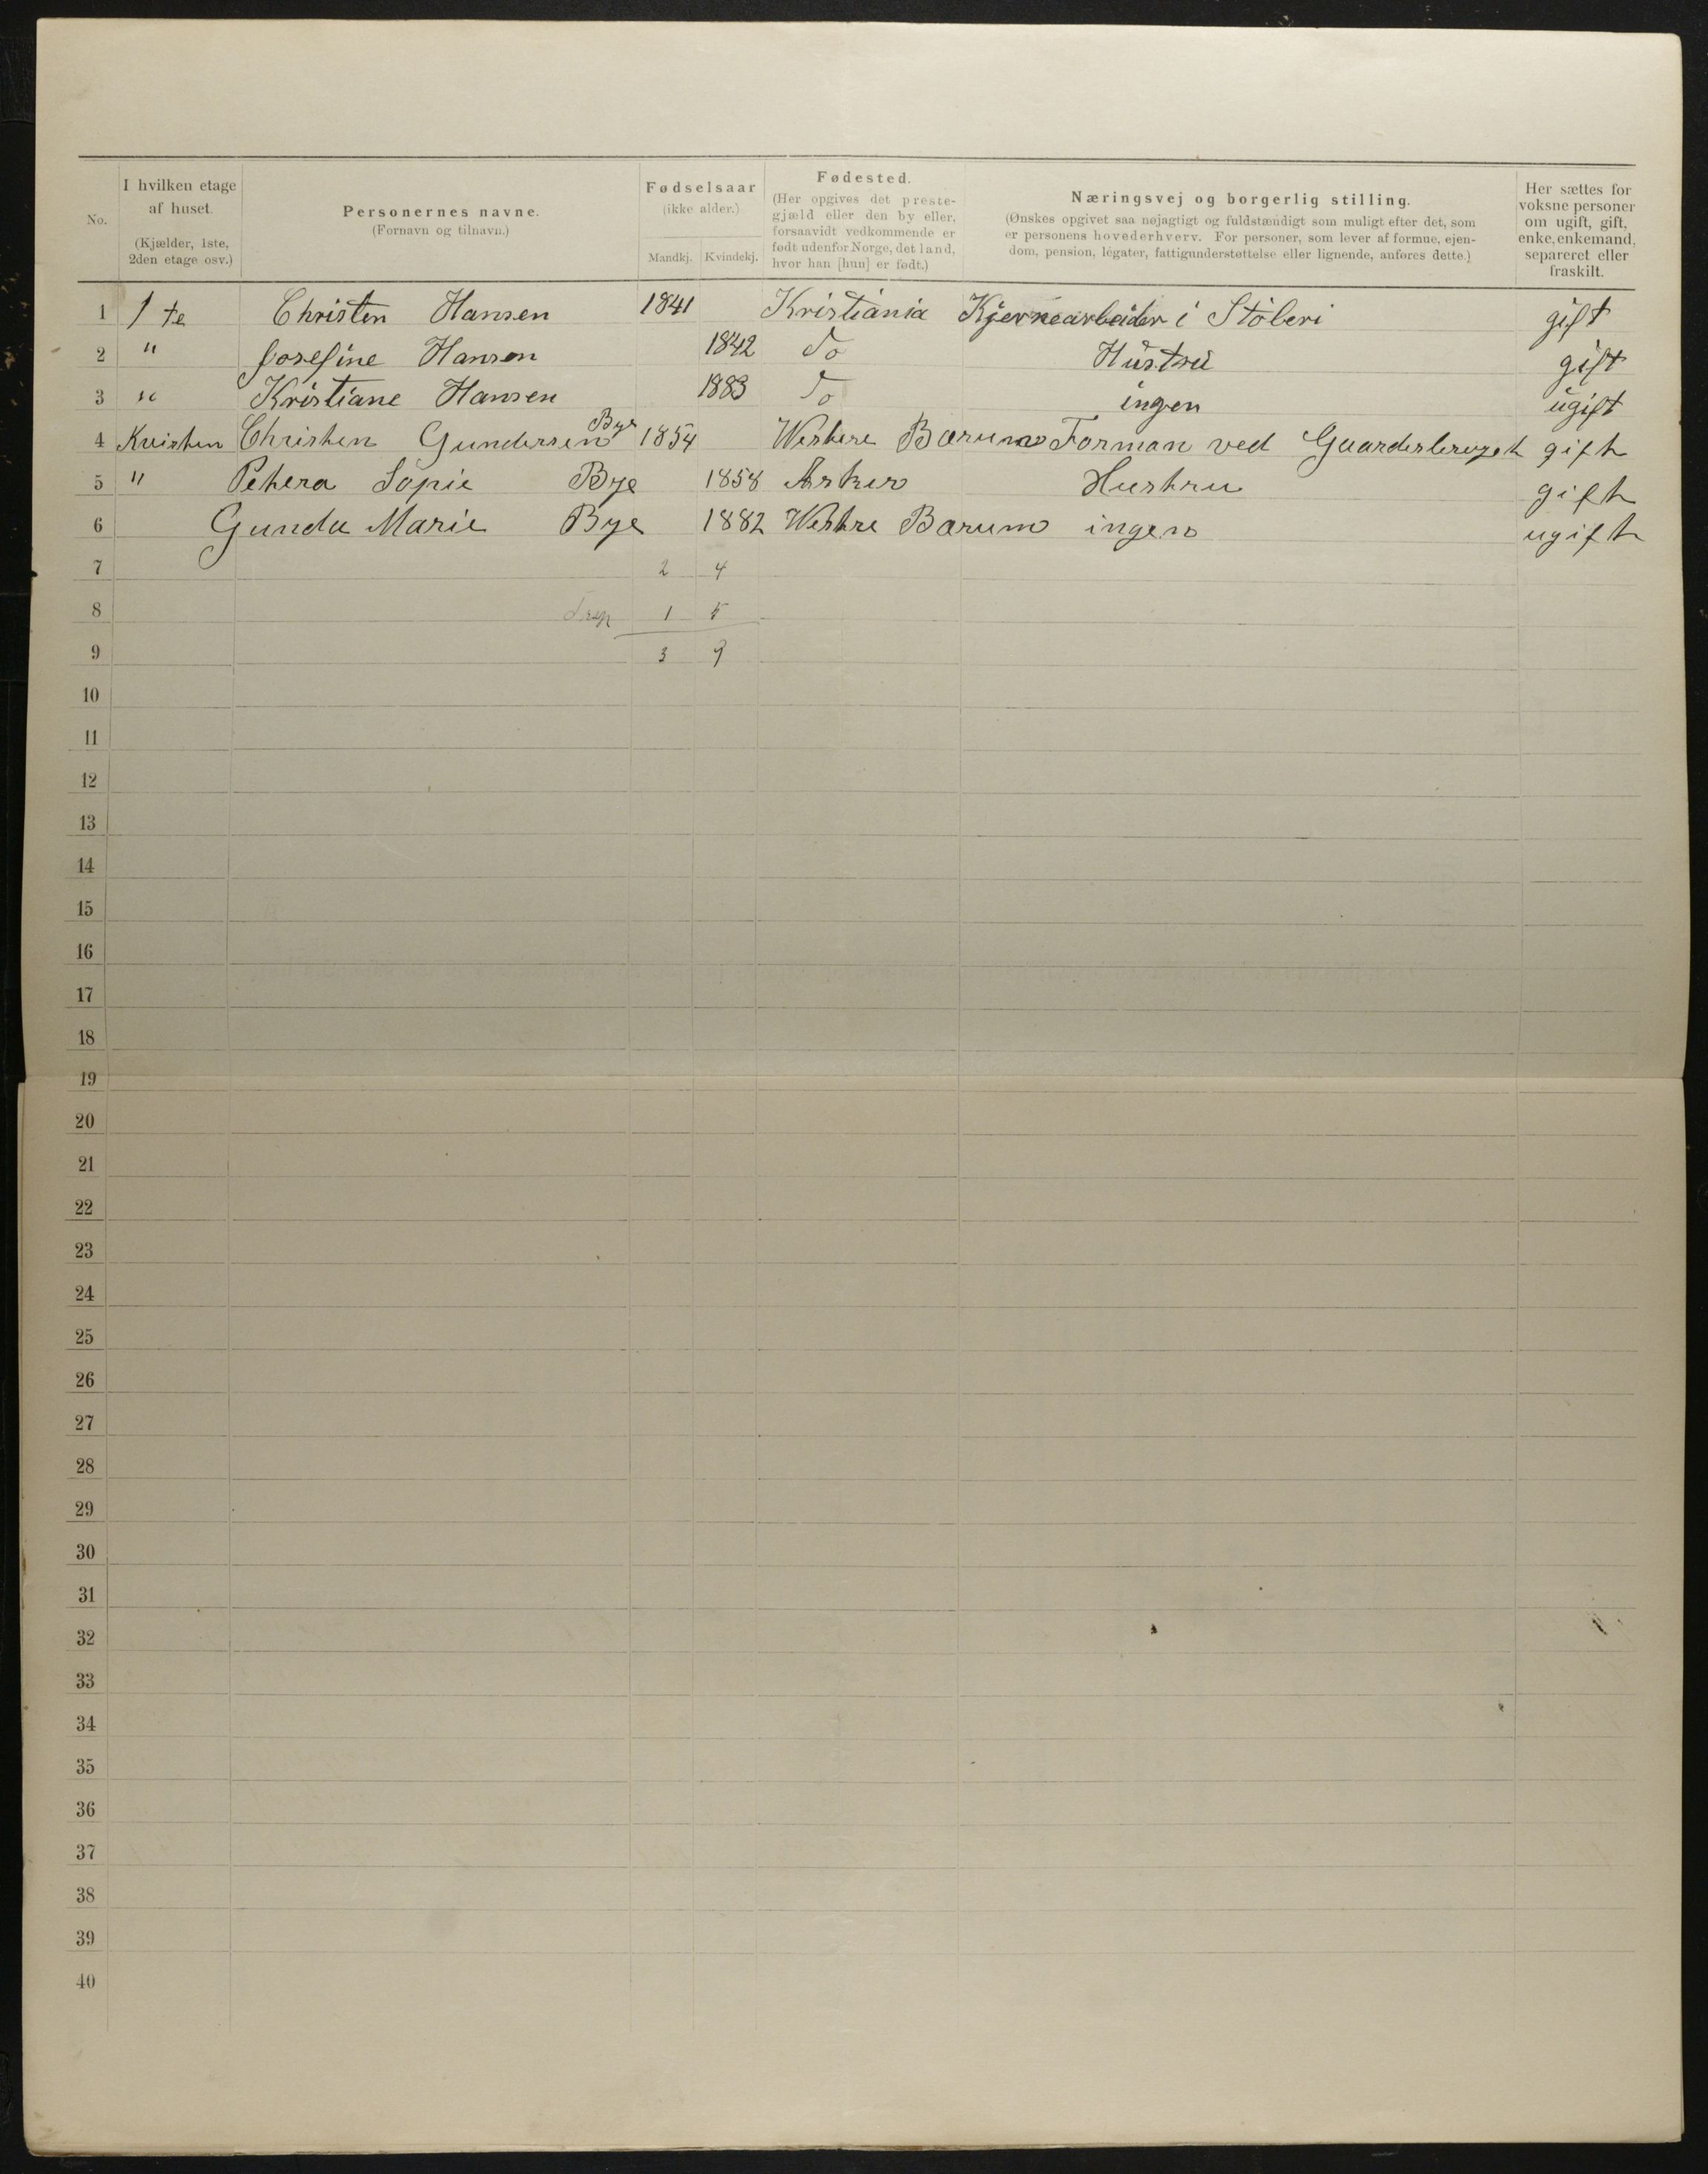 No.
I hvilken etage
af huset.
(Kjælder, 1ste,
2den etage osv.)
Personernes navne.
(Fornavn og tilnavn.)
Fødselsaar
(ikke alder.)
Mandkj. Kvindekj.
Fødested.
(Her opgives det preste-
gjæld eller den by eller,
forsaavidt vedkommende er
født udenfor Norge, det land,
hvor han [hun] er født.)
Næringsvej og borgerlig stilling.
(Ønskes opgivet saa nøjagtigt og fuldstændigt som muligt efter det, som
er personens hovederhverv. For personer, som lever af formue, ejen-
dom, pension, legater, fattigunderstøttelse eller lignende, anføres dette.)
Her sættes for
voksne personer
om ugift, gift,
enke, enkemand,
separeret eller
fraskilt.
1 1 te Christen Hansen 1841 Kristiania Kjernearbeider i Stöberi gift
2 " Josefine Hansen 1842 Do Hustru gift
3 " Kristiane Hansen 1883 Do ingen ugift
4 Kvisten Christen Gundersen Bye 1854 Westere Bærum Forman ved gift
5 " Petera Sopie Bye 1858 Asker Hustru gift
6 Gunda Marie Bye 1882 Westre Bærum ingen ugift
7 2 4
8 1 5
9 3 9
10
11
12
13
14
15
16
17
18
19
20
21
22
23
24
25
26
27
28
29
30
31
32
33
34
35
36
37
38
39
40